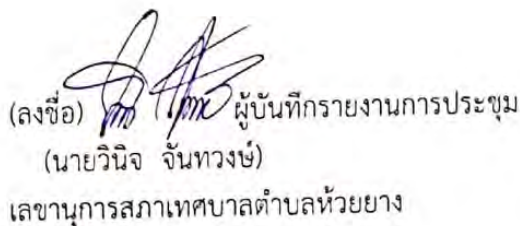 (ลงชื่อ) ผู้บันทึกรายงานการประชุม
(นายวินิจ จันทวงษ์)
เลขานุการสภาเทศบาลตำบลห้วยยาง